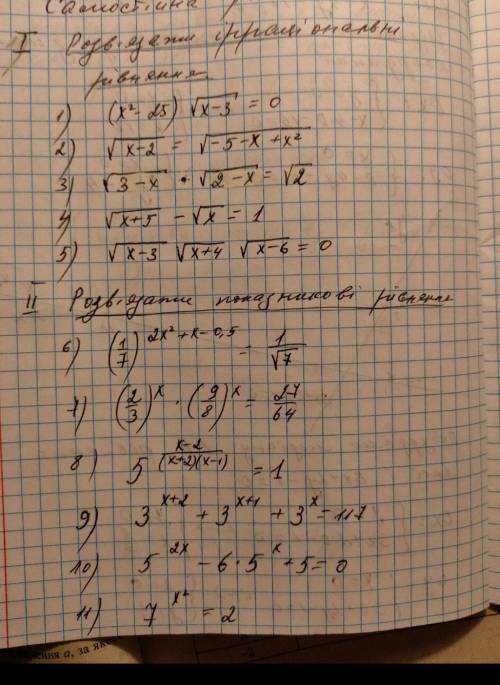 Самостійна
I Розв'язати ірраціональні
рівняння
1) (x² - 25) √(x-3) = 0
2) √(x-2) = √(-5-x+x²)
3) √(3-x) · √(2-x) = √2
4) √(x+5) - √x = 1
5) √(x-3) √(x+4) √(x-6) = 0
II Розв'язати показникові рівняння
6) (1/7)^(2x²+x-0,5) = 1/√7
7) (2/3)^x · (9/8)^x = 27/64
8) 5^((x-2)/((x+2)(x-1))) = 1
9) 3^(x+2) + 3^(x+1) + 3^x = 117
10) 5^(2x) - 6·5^x + 5 = 0
11) 7^(x²) = 2